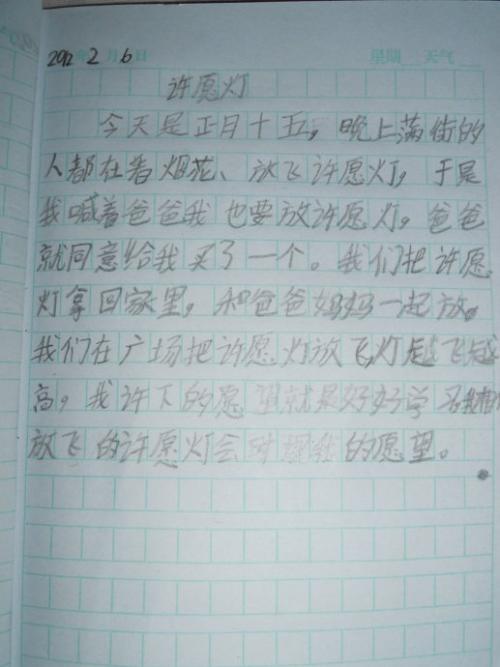 2012年2月6日 星期 天气
许愿灯
今天是正月十五，晚上满街的
人都在看烟花、放飞许愿灯，于是
我喊着爸爸我也要放许愿灯，爸爸
就同意给我买了一个。我们把许愿
灯拿回家里，和爸爸妈妈一起放。
我们在广场把许愿灯放飞，灯越飞越
高，我许下的愿望就是好好学习我相信
放飞的许愿灯会 我的愿望。